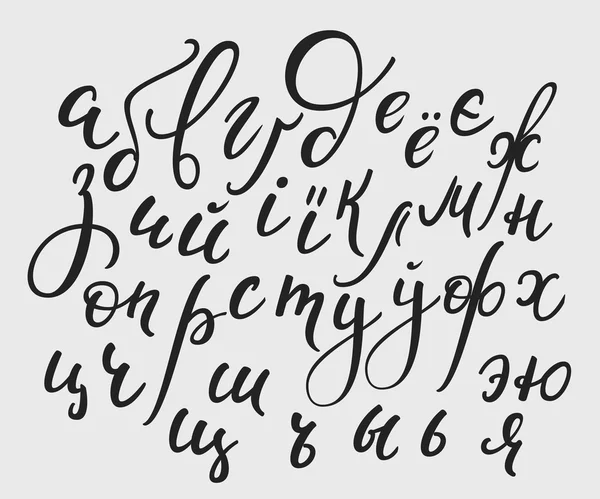 а б в г д е ё є ж
з и й і ї к л м н
о п р с т у ў ф х
ц ч ш э ю
щ ъ ы ь я